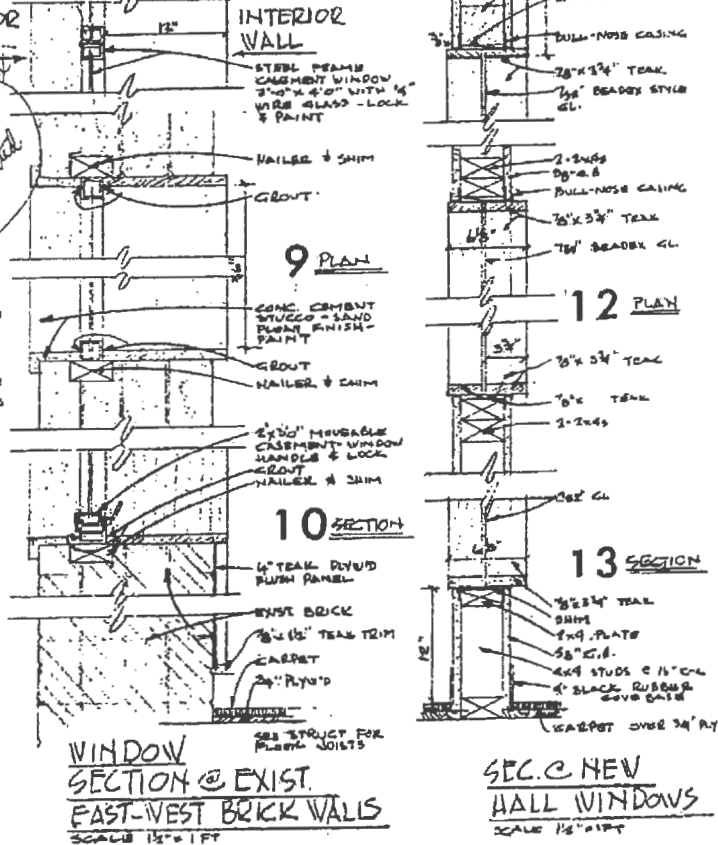 OR
12"
INTERIOR
WALL
STEEL FRAME
CASEMENT WINDOW
3'-0" x 4'0" WITH 1/4"
WIRE GLASS - LOCK
& PAINT
NAILER & SHIM
GROUT
9 PLAN
CONC. CEMENT
STUCCO - SAND
FLOAT FINISH -
PAINT
GROUT
NAILER & SHIM
2'x3'0" MOVEABLE
CASEMENT WINDOW
HANDLE & LOCK
GROUT
NAILER & SHIM
10 SECTION
1/4" TEAK PLYW'D
FLUSH PANEL
EXIST BRICK
TEAK TRIM
CARPET
3/4" PLYW'D
SEE STRUCT FOR
FLOOR JOISTS
WINDOW
SECTION @ EXIST.
EAST-WEST BRICK WALLS
SCALE 1½" = 1 FT
BULL-NOSE CASING
7/8" x 3¾" TEAK
BEADEX STYLE
GL.
2-2x4s
BULL-NOSE CASING
7/8" x 3¾" TEAK
BEADEX GL.
12 PLAN
3¾"
7/8" x 3¾" TEAK
7/8" x TEAK
2-2x4s
GL
13 SECTION
7/8" x 3¾" TEAK
SHIM
2x4 PLATE
5/8" G.B.
2x4 STUDS @ 16" C-C
4" BLACK RUBBER
COVE BASE
12"
CARPET OVER 3/4" PLY
SEC. @ NEW
HALL WINDOWS
SCALE 1½" = 1 FT